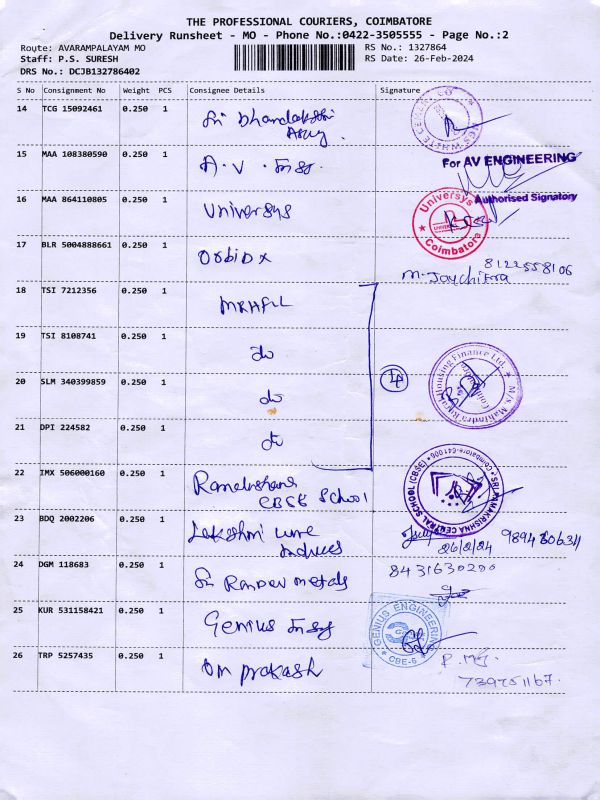 THE PROFESSIONAL COURIERS, COIMBATORE
Delivery Runsheet - MO - Phone No.:0422-3505555 - Page No.:2
Route: AVARAMPALAYAM MO RS No.: 1327864
Staff: P.S. SURESH RS Date: 26-Feb-2024
DRS No.: DCJB132786402
S No Consignment No Weight PCS Consignee Details Signature
14 TCG 15092461 0.250 1 Sri Dhanalakshmi
15 MAA 108380590 0.250 1 A.V.
For AV ENGINEERING
Authorised Signatory
16 MAA 864110805 0.250 1 Universys
Universys
Coimbatore
17 BLR 5004888661 0.250 1 Orbidx
M. Jaychitra 8122558106
18 TSI 7212356 0.250 1 MRHFL
19 TSI 8108741 0.250 1 do
20 SLM 340399859 0.250 1 do
14
M/s. Mahindra Rural Housing Finance Ltd.
21 DPI 224582 0.250 1 do
22 IMX 506000160 0.250 1 Ramakrishna
CBSE School
SRI RAMAKRISHNA CENTRAL SCHOOL (CBSE)
Coimbatore-641006
23 BDQ 2002206 0.250 1 Lakshmi
26/2/24
24 DGM 118683 0.250 1 Sri RanDev metals
8431630200
25 KUR 531158421 0.250 1 Genius
GENIUS ENGINEERING
CBE-6
26 TRP 5257435 0.250 1 Om prakash